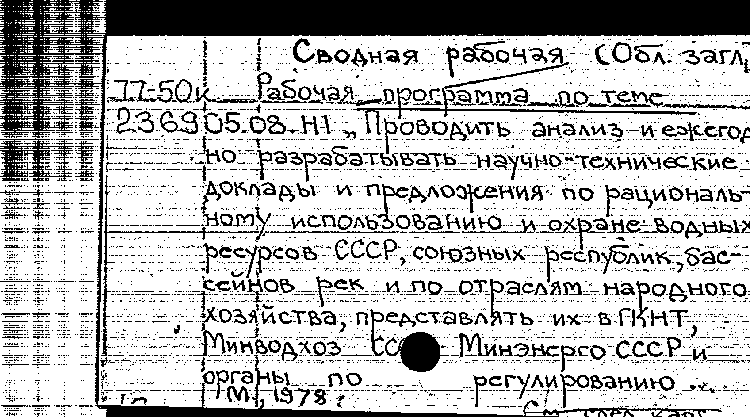 Сводная рабочая (Обл. загл.
77-50к Рабочая программа по теме
2369 05.08.Н1 „Проводить анализ и ежегод
но разрабатывать научно-технические
доклады и предложения по рациональ-
ному использованию и охране водных
ресурсов СССР, союзных республик, бас-
сейнов рек и по отраслям народного
хозяйства, представлять их в ГКНТ,
Минводхоз Минэнерго СССР и
органы по регулированию ...
М., 1978.
См. след. карт.